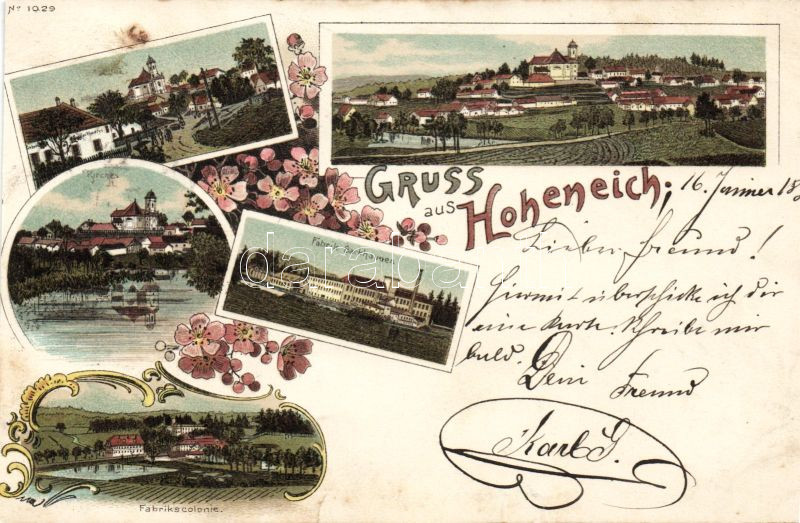 No 1029
Kirche
GRUSS
aus
Hoheneich;
16. Jänner 18
Lieber Freund!
Hiermit überschicke ich dir
eine Karte. Schreibe mir
bald.
Dein Freund
Karl G.
Fabrik
darabanth
Fabrikscolonie.